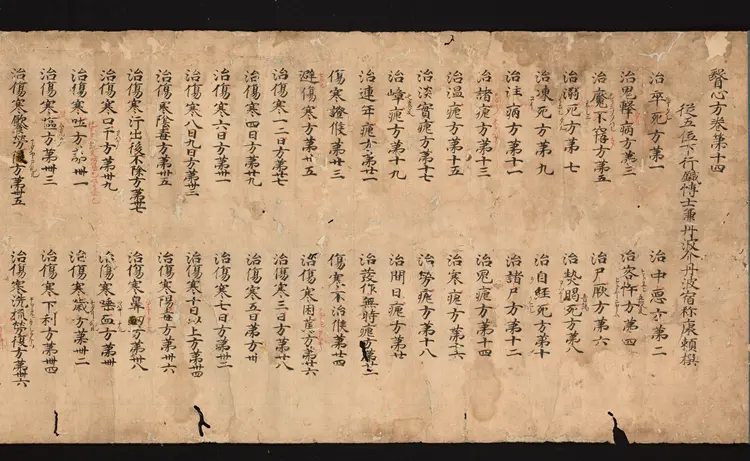 醫心方卷第十四
從五位下行鍼博士兼丹波介丹波宿祢康頼撰
治卒死方第一　治中惡方第二
治鬼擊病方第三　治客忤方第四
治魘不寤方第五　治尸厥方第六
治溺死方第七　治熱暍死方第八
治凍死方第九　治自經死方第十
治注病方第十一　治諸尸方第十二
治諸瘧方第十三　治鬼瘧方第十四
治温瘧方第十五　治寒瘧方第十六
治淡實瘧方第十七　治勞瘧方第十八
治嶂瘧方第十九　治間日瘧方第廿
治連年瘧方第廿一　治發作無時瘧方第廿二
傷寒證候第廿三　傷寒不治候第廿四
避傷寒方第廿五　治傷寒困篤方第廿六
治傷寒一二日方第廿七　治傷寒三日方第廿八
治傷寒四日方第廿九　治傷寒五日方第卅
治傷寒六日方第卅一　治傷寒七日方第卅二
治傷寒八日九日方第卅三　治傷寒十日以上方第卅四
治傷寒陰毒方第卅五　治傷寒陽毒方第卅六
治傷寒汗出後不除方第卅七　治傷寒鼻衂方第卅八
治傷寒口干方第卅九　治傷寒唾血方第卌
治傷寒吐方第卌一　治傷寒方第卌二
治傷寒方第卌三　治傷寒下利方第卌四
治傷寒勞復方第卌五　治傷寒洗梳勞復方第卌六